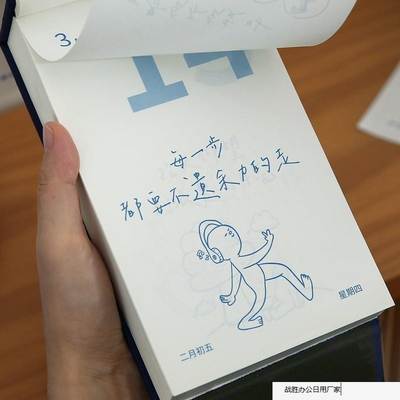 3.
15
每一步
都要不遗余力的走
二月初五
星期四
战胜办公日用厂家